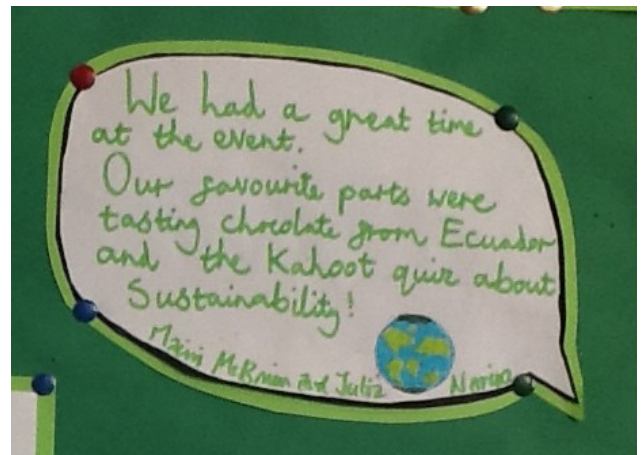 We had a great time
at the event.
Our favourite parts were
tasting chocolate from Ecuador
and the Kahoot quiz about
Sustainability!
McBrien and Julia